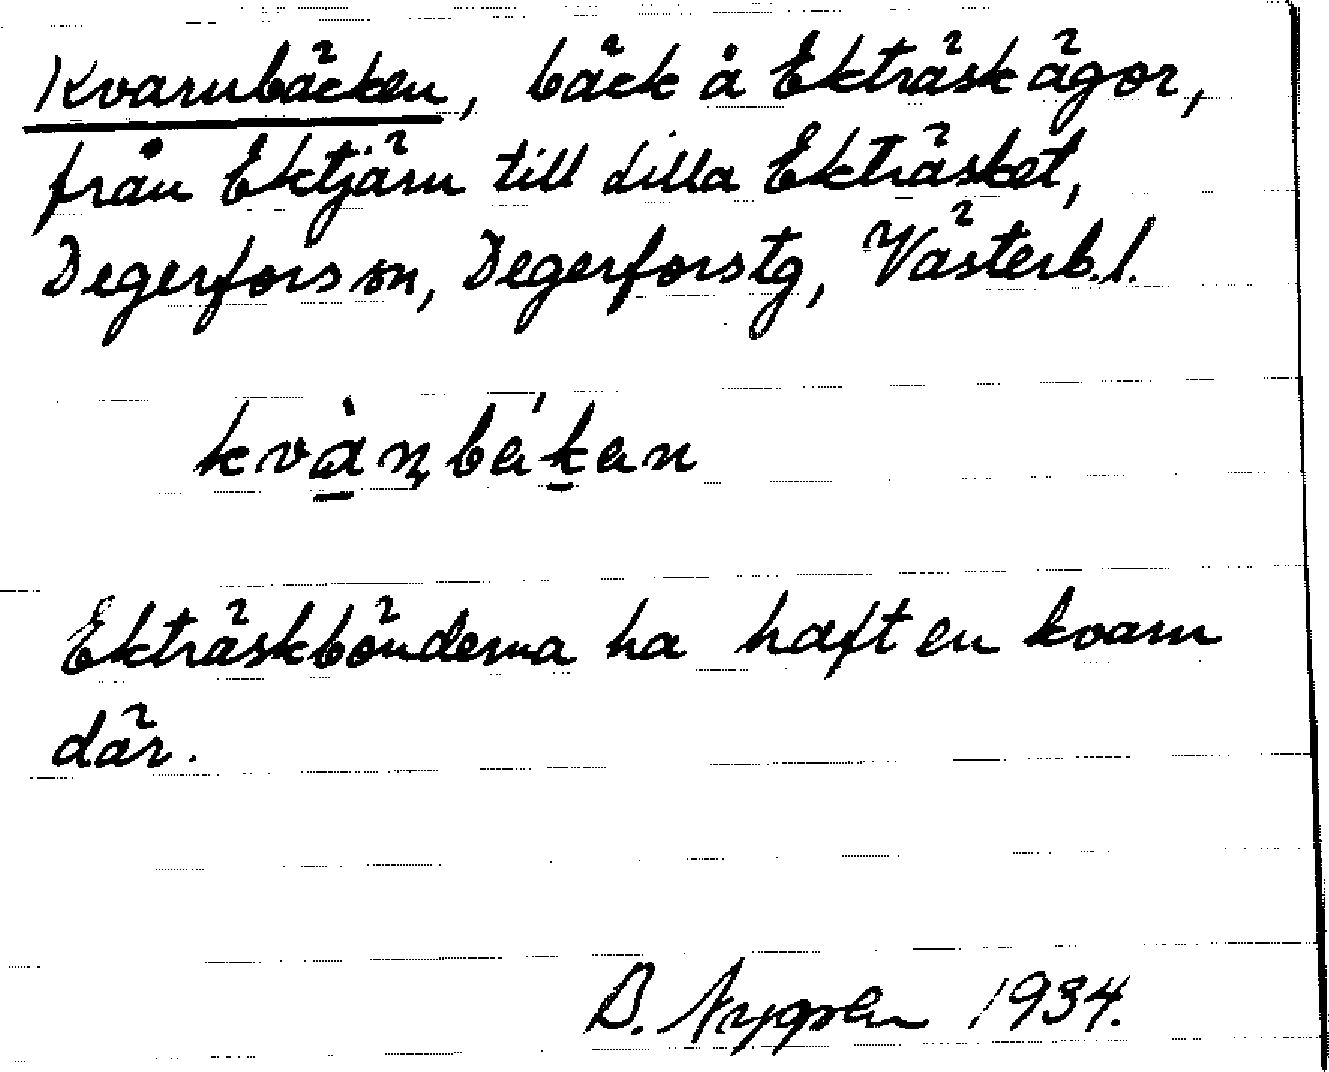 Kvarnbäcken, bäck å Ekträsk ägor,
från Ektjärn till Lilla Ekträsket,
Degerfors sn, Degerfors tg, Västerb.l.
kvàṇbäḱan
Ekträskbönderna ha haft en kvarn
där.
B. Nygren 1934.